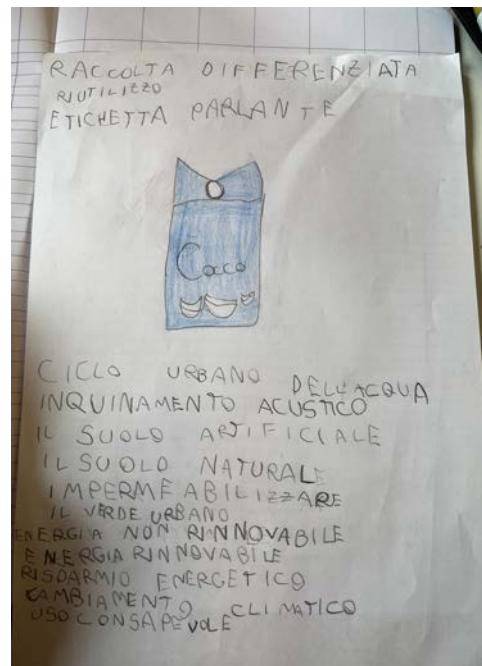 RACCOLTA DIFFERENZIATA
RIUTILIZZO
ETICHETTA PARLANTE
Coco
CICLO URBANO DELL'ACQUA
INQUINAMENTO ACUSTICO
IL SUOLO ARTIFICIALE
IL SUOLO NATURALE
IMPERMEABILIZZARE
IL VERDE URBANO
ENERGIA NON RINNOVABILE
ENERGIA RINNOVABILE
RISPARMIO ENERGETICO
CAMBIAMENTO CLIMATICO
USO CONSAPEVOLE